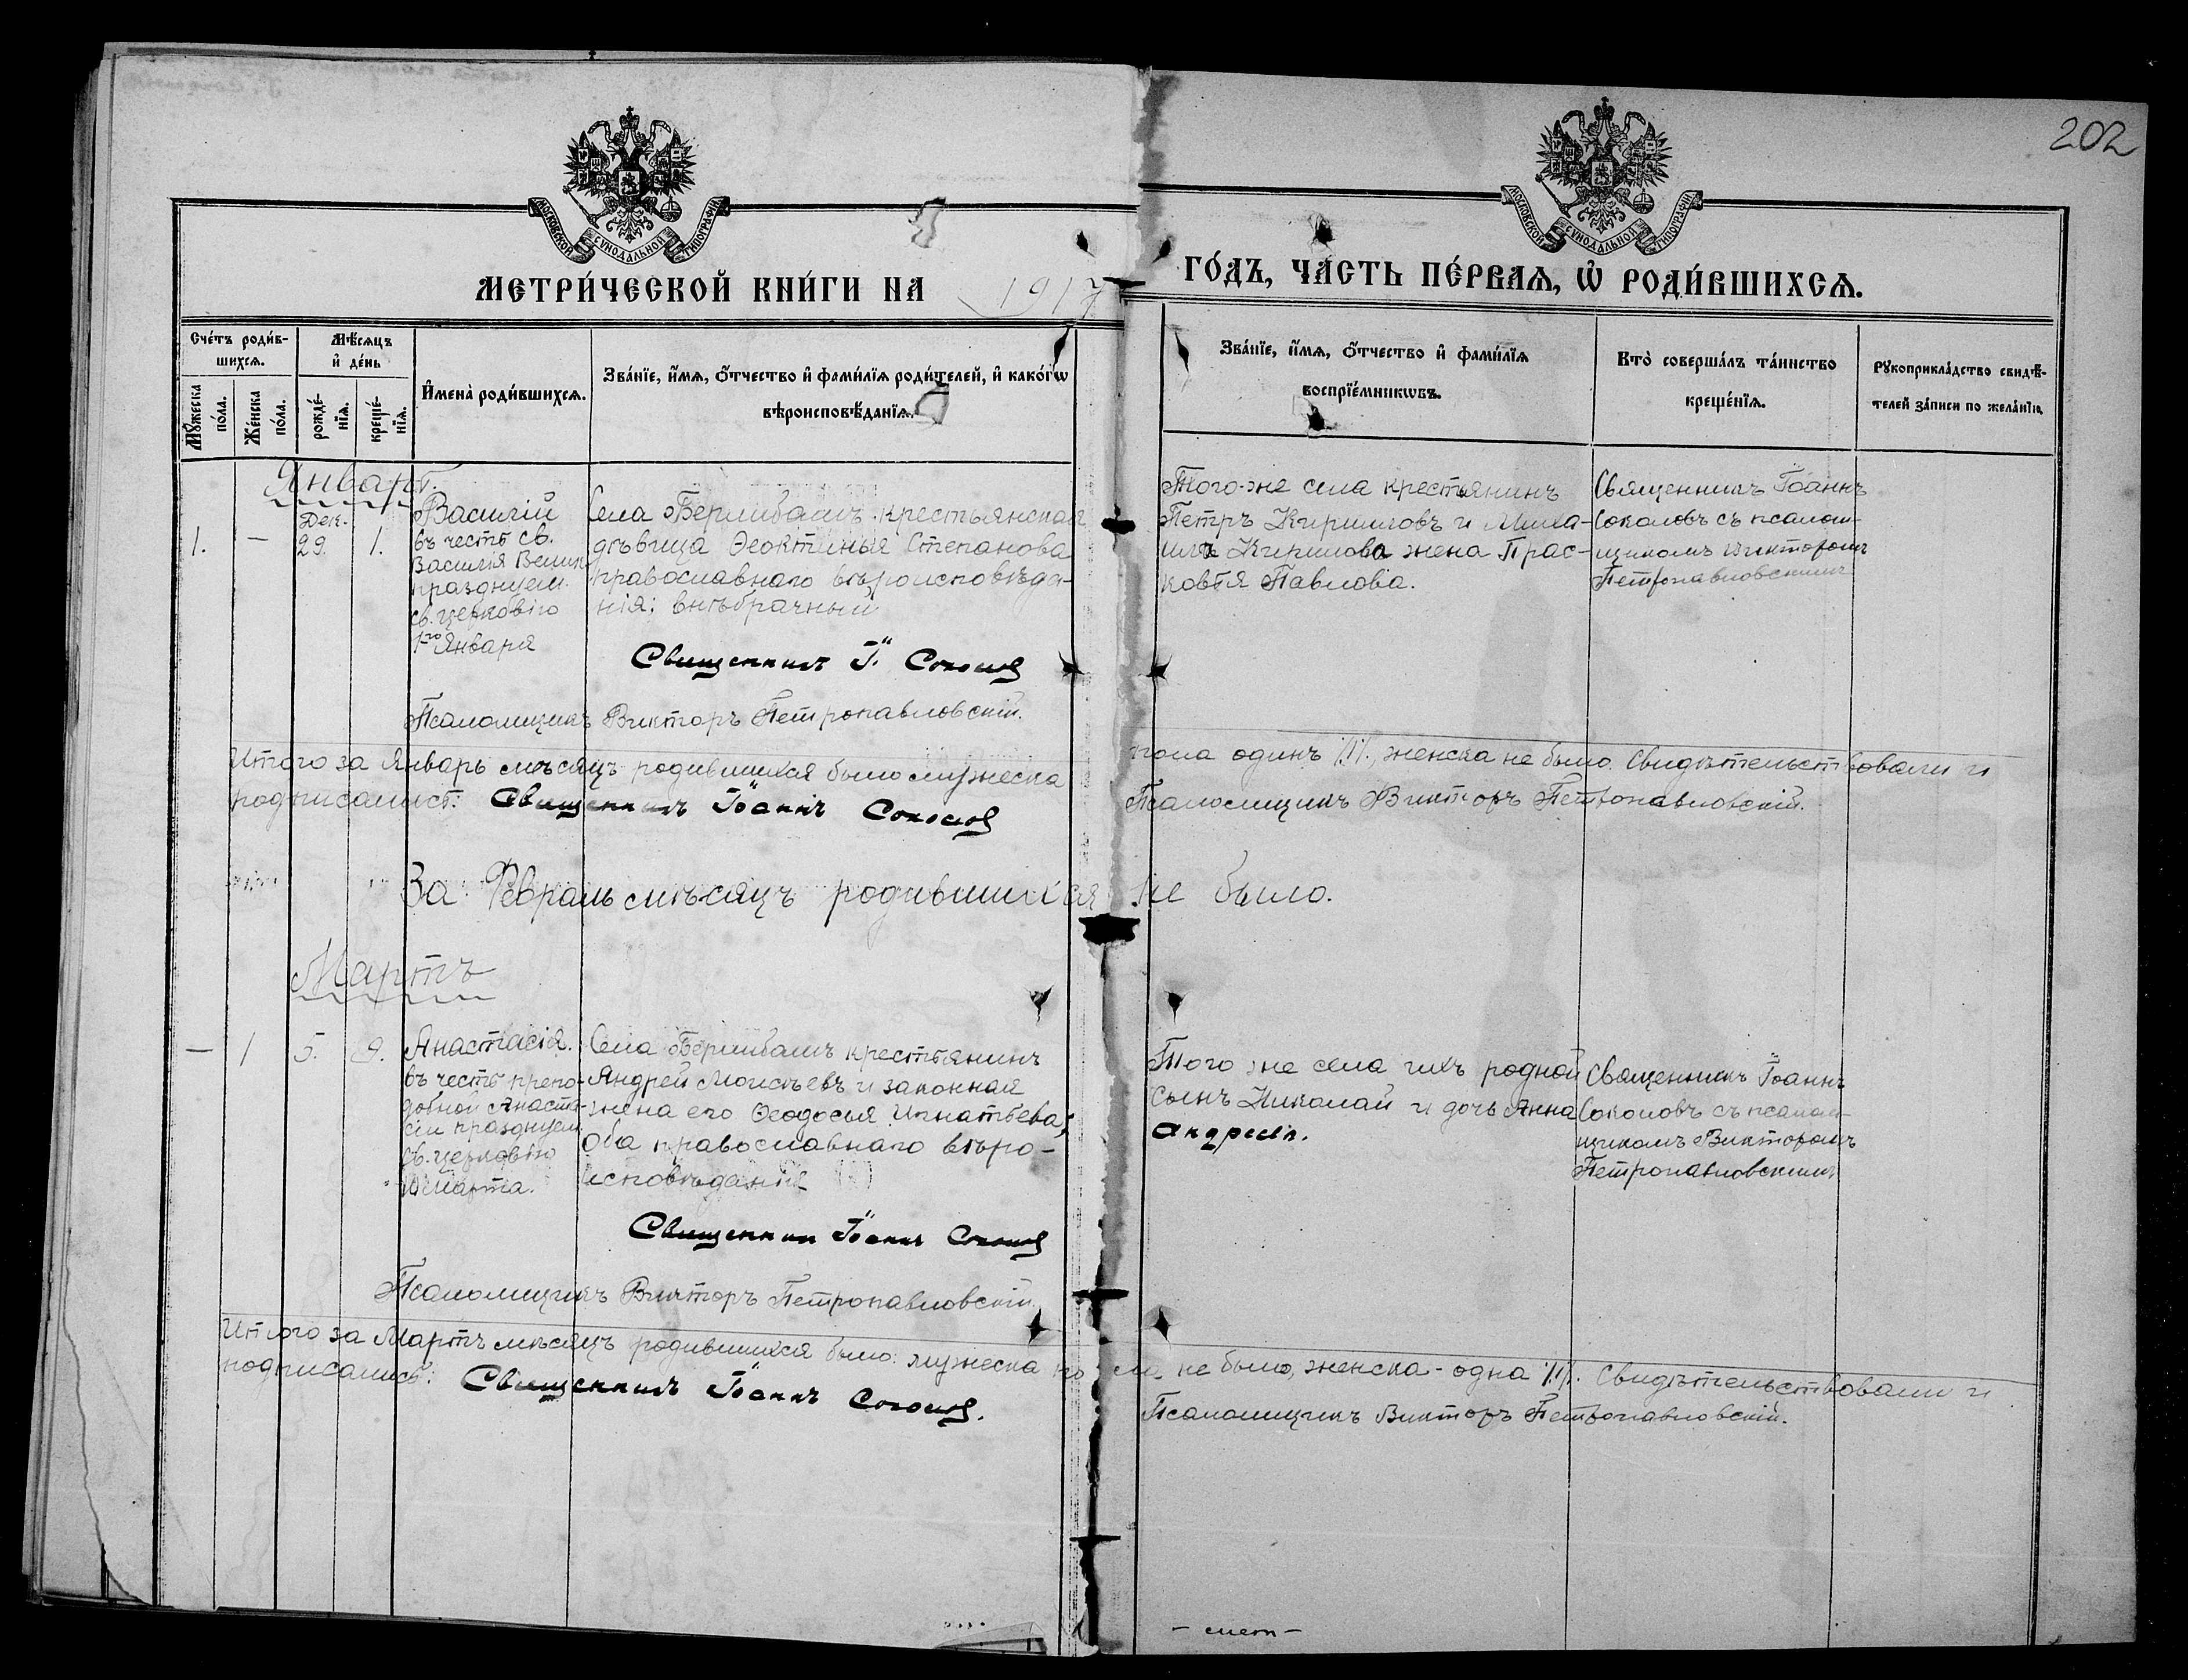 202
МОСКОВСКОЙ СУНОДАЛЬНОЙ ТИПОГРАФІИ
МОСКОВСКОЙ СУНОДАЛЬНОЙ ТИПОГРАФІИ
МЕТРИ́ЧЕСКОЙ КНИ́ГИ НА 1917
ГО́ДЪ, ЧА́СТЬ ПЕ́РВАѦ, Ѽ РОДИ́ВШИХСѦ.
Сче́тъ роди́в-
шихсѧ.
Мꙋ́жеска по́ла.
Же́нска по́ла.
Мѣ́сѧцъ
и҆ де́нь
рожде́-
нїѧ.
креще́-
нїѧ.
И҆мена̀ роди́вшихсѧ.
Зва́нїе, и҆́мѧ, ѻ҆́тчество и҆ фами́лїѧ роди́телей, и҆ како́гѡ
вѣроисповѣ́данїѧ.
Зва́нїе, и҆́мѧ, ѻ҆́тчество и҆ фами́лїѧ
воспрїе́мникѡвъ.
Кто̀ соверша́лъ та́инство
креще́нїѧ.
Рꙋкоприкла́дство свидѣ́-
телей за́писи по жела́нїю.
Январь.
1.
—
Дек.
29.
1.
Василій
въ честь св.
Василія Велик.
празднуем.
св. церковію
1го Января
Села Берлибашъ крестьянская
дѣвица Ѳеоктинья Степанова
православнаго вѣроисповѣда-
нія; внѣбрачный
Того-же села крестьянинъ
Петръ Кирилловъ и Миха-
ила Кирилова жена Прас-
ковья Павлова.
Священникъ Іоаннъ
Соколовъ съ псалом-
щикомъ Викторомъ
Петропавловскимъ
Священникъ І. Соколов
Псаломщикъ Викторъ Петропавловскій.
Итого за Январь мѣсяцъ родившихся было мужеска
пола одинъ /1/, женска не было. Свидѣтельствовали и
подписались: Священникъ Іоаннъ Соколов
Псаломщикъ Викторъ Петропавловскій.
За Февраль мѣсяцъ родившихся не было.
Мартъ
—
1
5.
9.
Анастасія.
въ честь препо-
добной Анаста-
сіи празднуем.
св. церковію
10 марта.
Села Берлибашъ крестьянинъ
Андрей Моисѣевъ и законная
жена его Ѳеодосья Игнатьева;
Оба православнаго вѣро-
исповѣданія
Того же села ихъ родной
сынъ Николай и дочь Анна
Священникъ Іоаннъ
Соколовъ съ псалом-
щикомъ Викторомъ
Петропавловскимъ
Священник Іоанн Соколов
Псаломщикъ Викторъ Петропавловскій.
Итого за Мартъ мѣсяцъ родившихся было: мужеска пола не было, женска - одна /1/. Свидѣтельствовали и
подписались: Священникъ Іоаннъ Соколов.
Псаломщикъ Викторъ Петропавловскій.